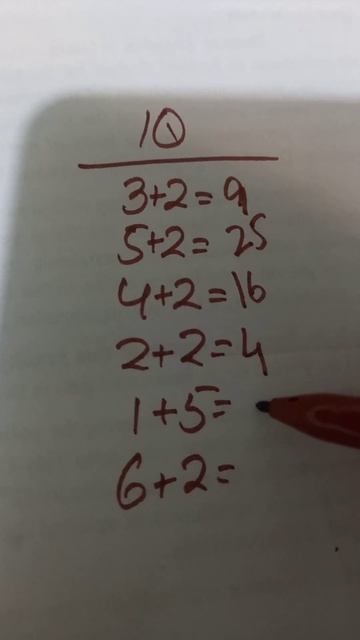 IQ
3+2=9
5+2=25
4+2=16
2+2=4
1+5=
6+2=